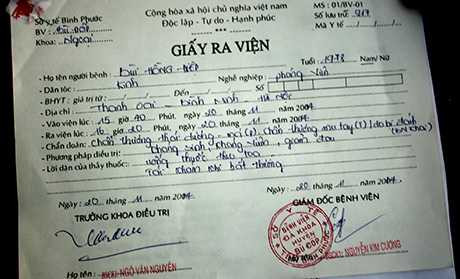 Sở y tế Bình Phước
BV: Bù Đốp
Khoa: Ngoại
Cộng hòa xã hội chủ nghĩa việt nam
Độc lập - Tự do - Hạnh phúc
***
MS : 01/BV-01
Số lưu trữ
Mã Y tế
GIẤY RA VIỆN
- Họ tên người bệnh : BÙI - HỒNG - Tuổi: Nam/ Nữ
- Dân tộc : Kinh Nghề nghiệp : phóng viên
- BHYT : giá trị từ : Đến Số
- Địa chỉ : Thanh Oai - Hà Nội
- Vào viện lúc : 15 giờ 40 Phút, ngày 20 tháng 11 năm 2007
- Ra viện lúc : 16 giờ 20 Phút, ngày 20 tháng 11 năm 2007
- Chẩn đoán : Chấn thương thái dương chấn thương tay (T) do bị đánh
(BN khai)
- Phương pháp điều trị : kháng sinh, kháng viêm, giảm đau
- Lời dặn của thầy thuốc : uống thuốc theo toa
Tái khám khi bất thường
Ngày : 20 tháng 11 năm 2007
Ngày : 20 tháng 11 năm 2007
TRƯỞNG KHOA ĐIỀU TRỊ
GIÁM ĐỐC BỆNH VIỆN
SỞ Y TẾ
BỆNH VIỆN
ĐA KHOA
HUYỆN
BÙ ĐỐP
BÌNH PHƯỚC
NGÔ VĂN NGUYÊN
BSCKI: NGUYỄN KIM CƯƠNG